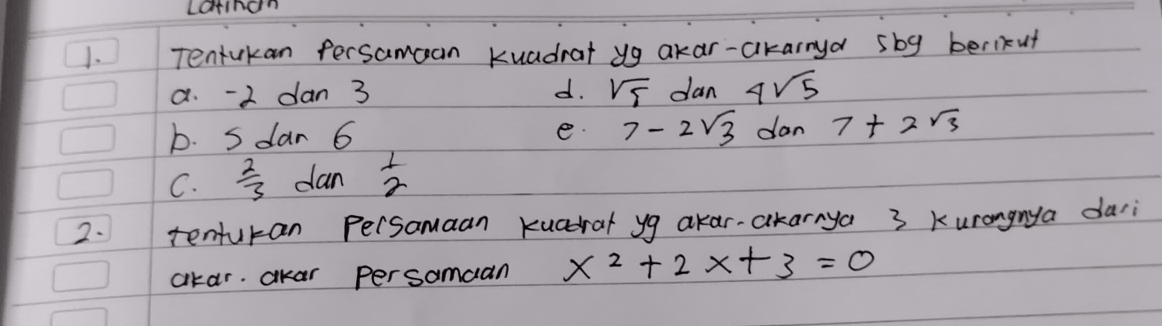 Latihan
1. Tentukan Persamaan Kuadrat yg akar-akarnya sbg berikut
a. -2 dan 3 d. √5 dan 4√5
b. 5 dan 6 e. 7 - 2√3 dan 7 + 2√3
c. 2/3 dan 1/2
2. tentukan Persamaan kuadrat yg akar-akarnya 3 kurangnya dari
akar-akar persamaan x² + 2x + 3 = 0